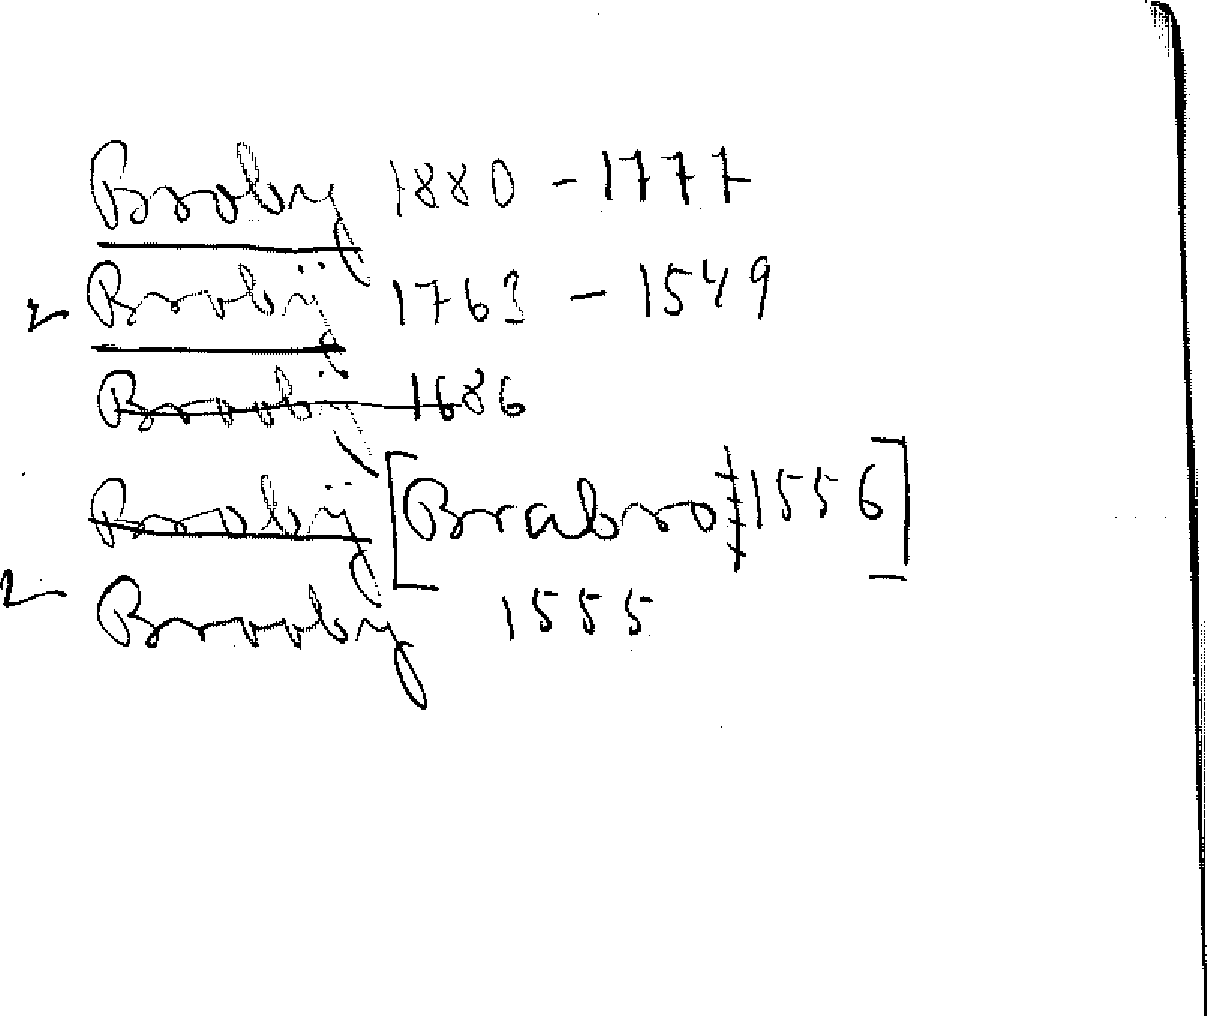 Brooby 1880 - 1777
2 Broobÿ 1763 - 1549
Broobÿ 1686
Broobÿ [Brabro 1556]
2 Brooby 1555